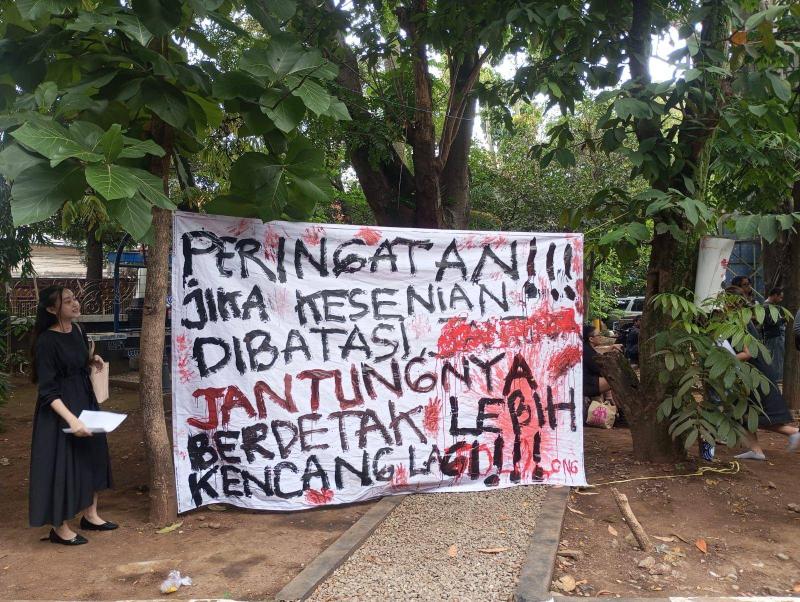 PERINGATAN!!!
JIKA KESENIAN
DIBATASI
JANTUNGNYA
BERDETAK LEBIH
KENCANG LAGI!!!!